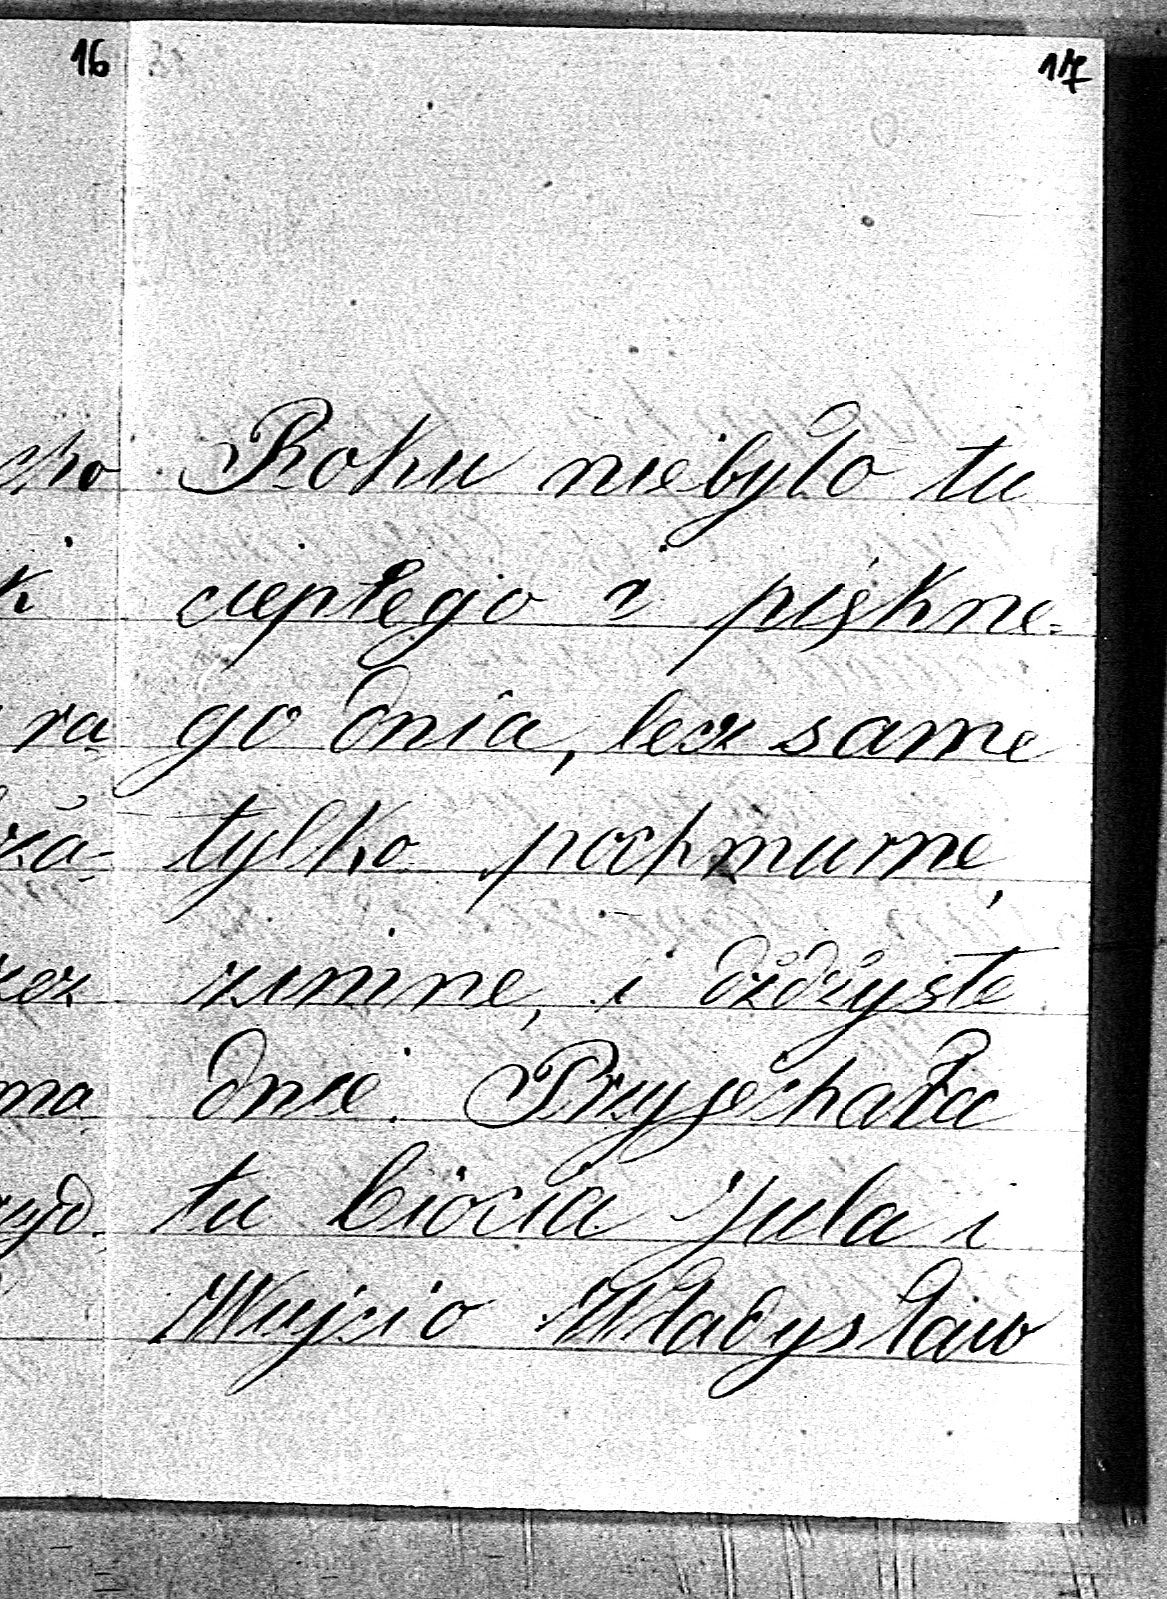 16
17
Roku niebyło tu
ciepłego i piękne-
go dnia, lecz same
tylko pochmurne,
zimne, i dżdżyste
dnie. Przyjechała
tu Ciocia Jula i
Wujcio Władysław